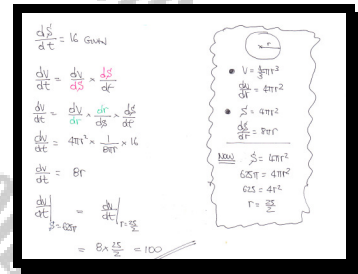 dS/dt = 16 GIVEN
dV/dt = dV/dS × dS/dt
dV/dt = dV/dr × dr/dS × dS/dt
dV/dt = 4πr² × 1/8πr × 16
dV/dt = 8r
dV/dt|S=625π = dV/dt|r=25/2
= 8 × 25/2 = 100
r
• V = 4/3πr³
dV/dr = 4πr²
• S = 4πr²
dS/dr = 8πr
NOW S = 4πr²
625π = 4πr²
625 = 4r²
r = 25/2